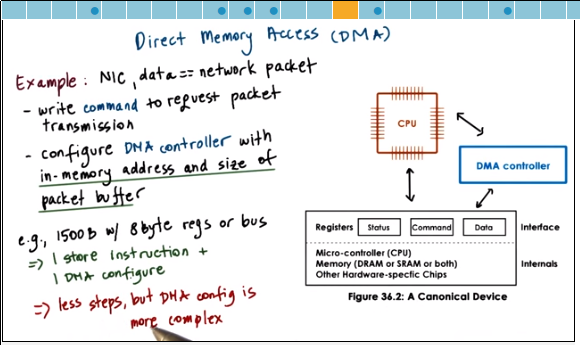 Direct Memory Access (DMA)
Example: NIC, data == network packet
- write command to request packet
transmission
- configure DMA controller with
in-memory address and size of
packet buffer
e.g., 1500B w/ 8byte regs or bus
=> 1 store instruction +
1 DMA configure
=> less steps, but DMA config is
more complex
CPU
DMA controller
Registers Status Command Data Interface
Micro-controller (CPU)
Memory (DRAM or SRAM or both) Internals
Other Hardware-specfic Chips
Figure 36.2: A Canonical Device